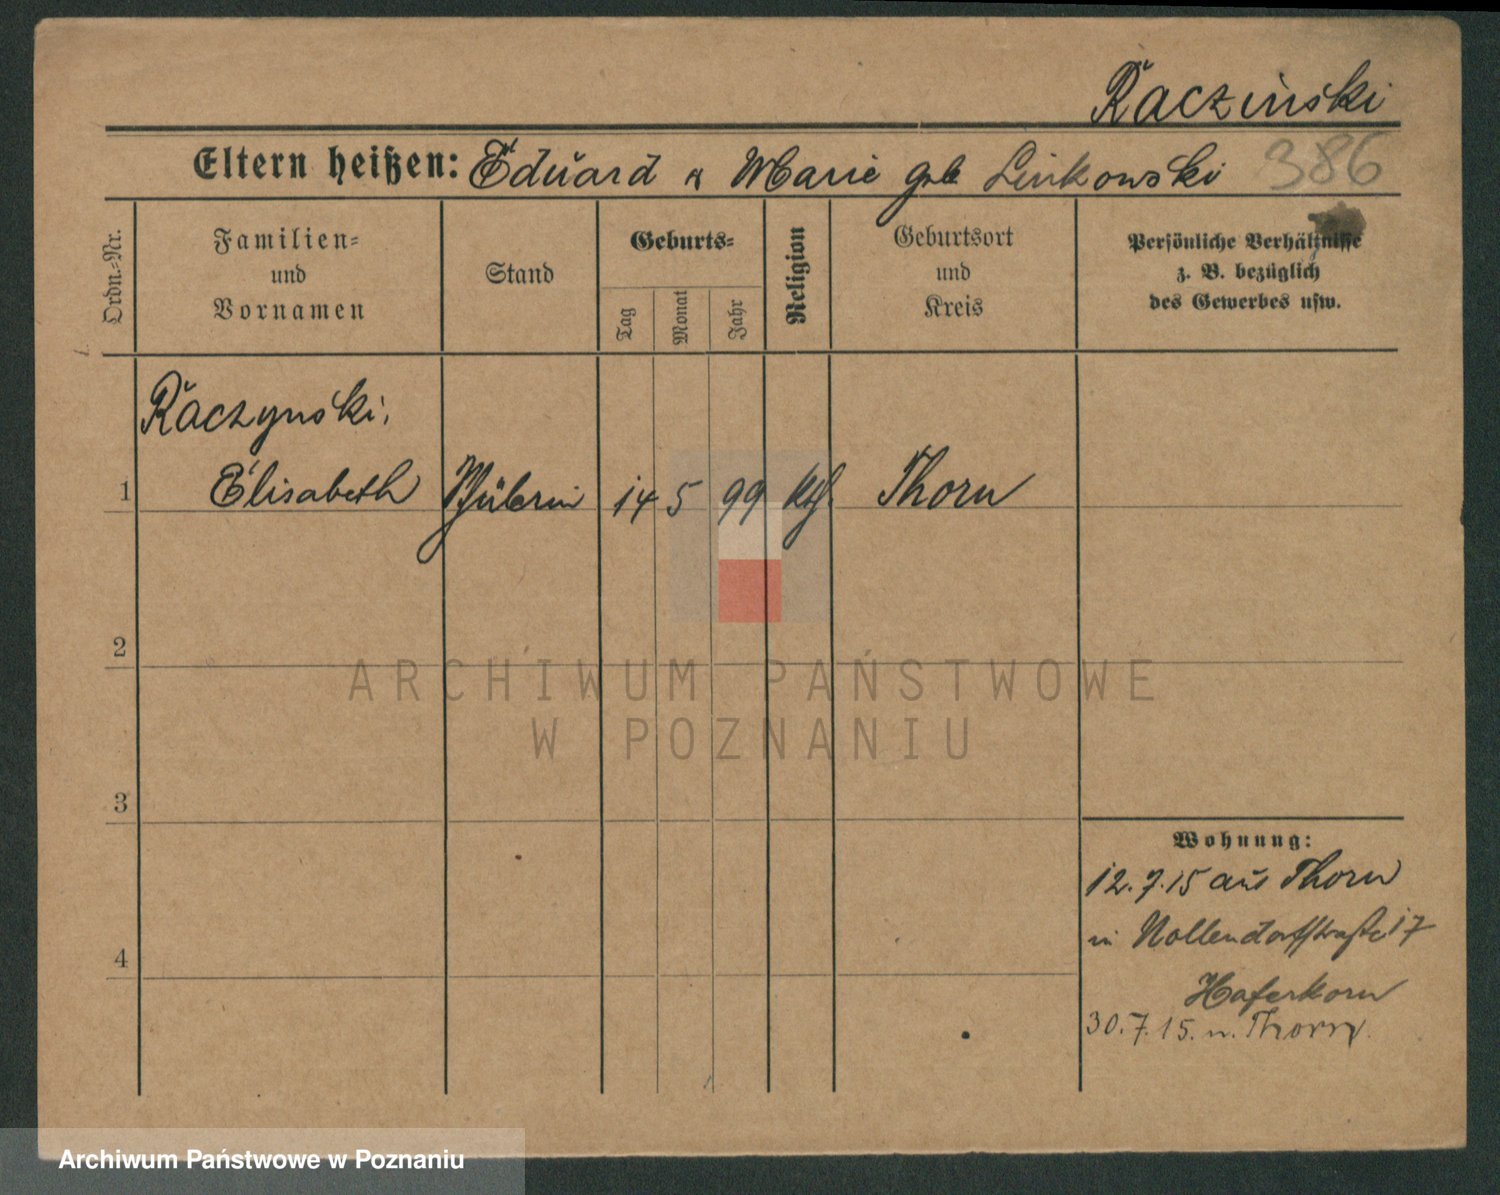 Raczinski
Eltern heißen: Eduard u Marie geb Linkowski 386
Ordn.-Nr.
Familien-
und
Vornamen
Stand
Geburts-
Tag
Monat
Jahr
Religion
Geburtsort
und
Kreis
Persönliche Verhältnisse
z. B. bezüglich
des Gewerbes usw.
Raczynski,
1 Elisabeth Schülerin 14 5 99 kth. Thorn
2
3
4
Wohnung:
12.7.15 aus Thorn
in Nollendorfstraße 17
Haferkorn
30.7.15. n. Thorn.
ARCHIWUM PAŃSTWOWE
W POZNANIU
Archiwum Państwowe w Poznaniu